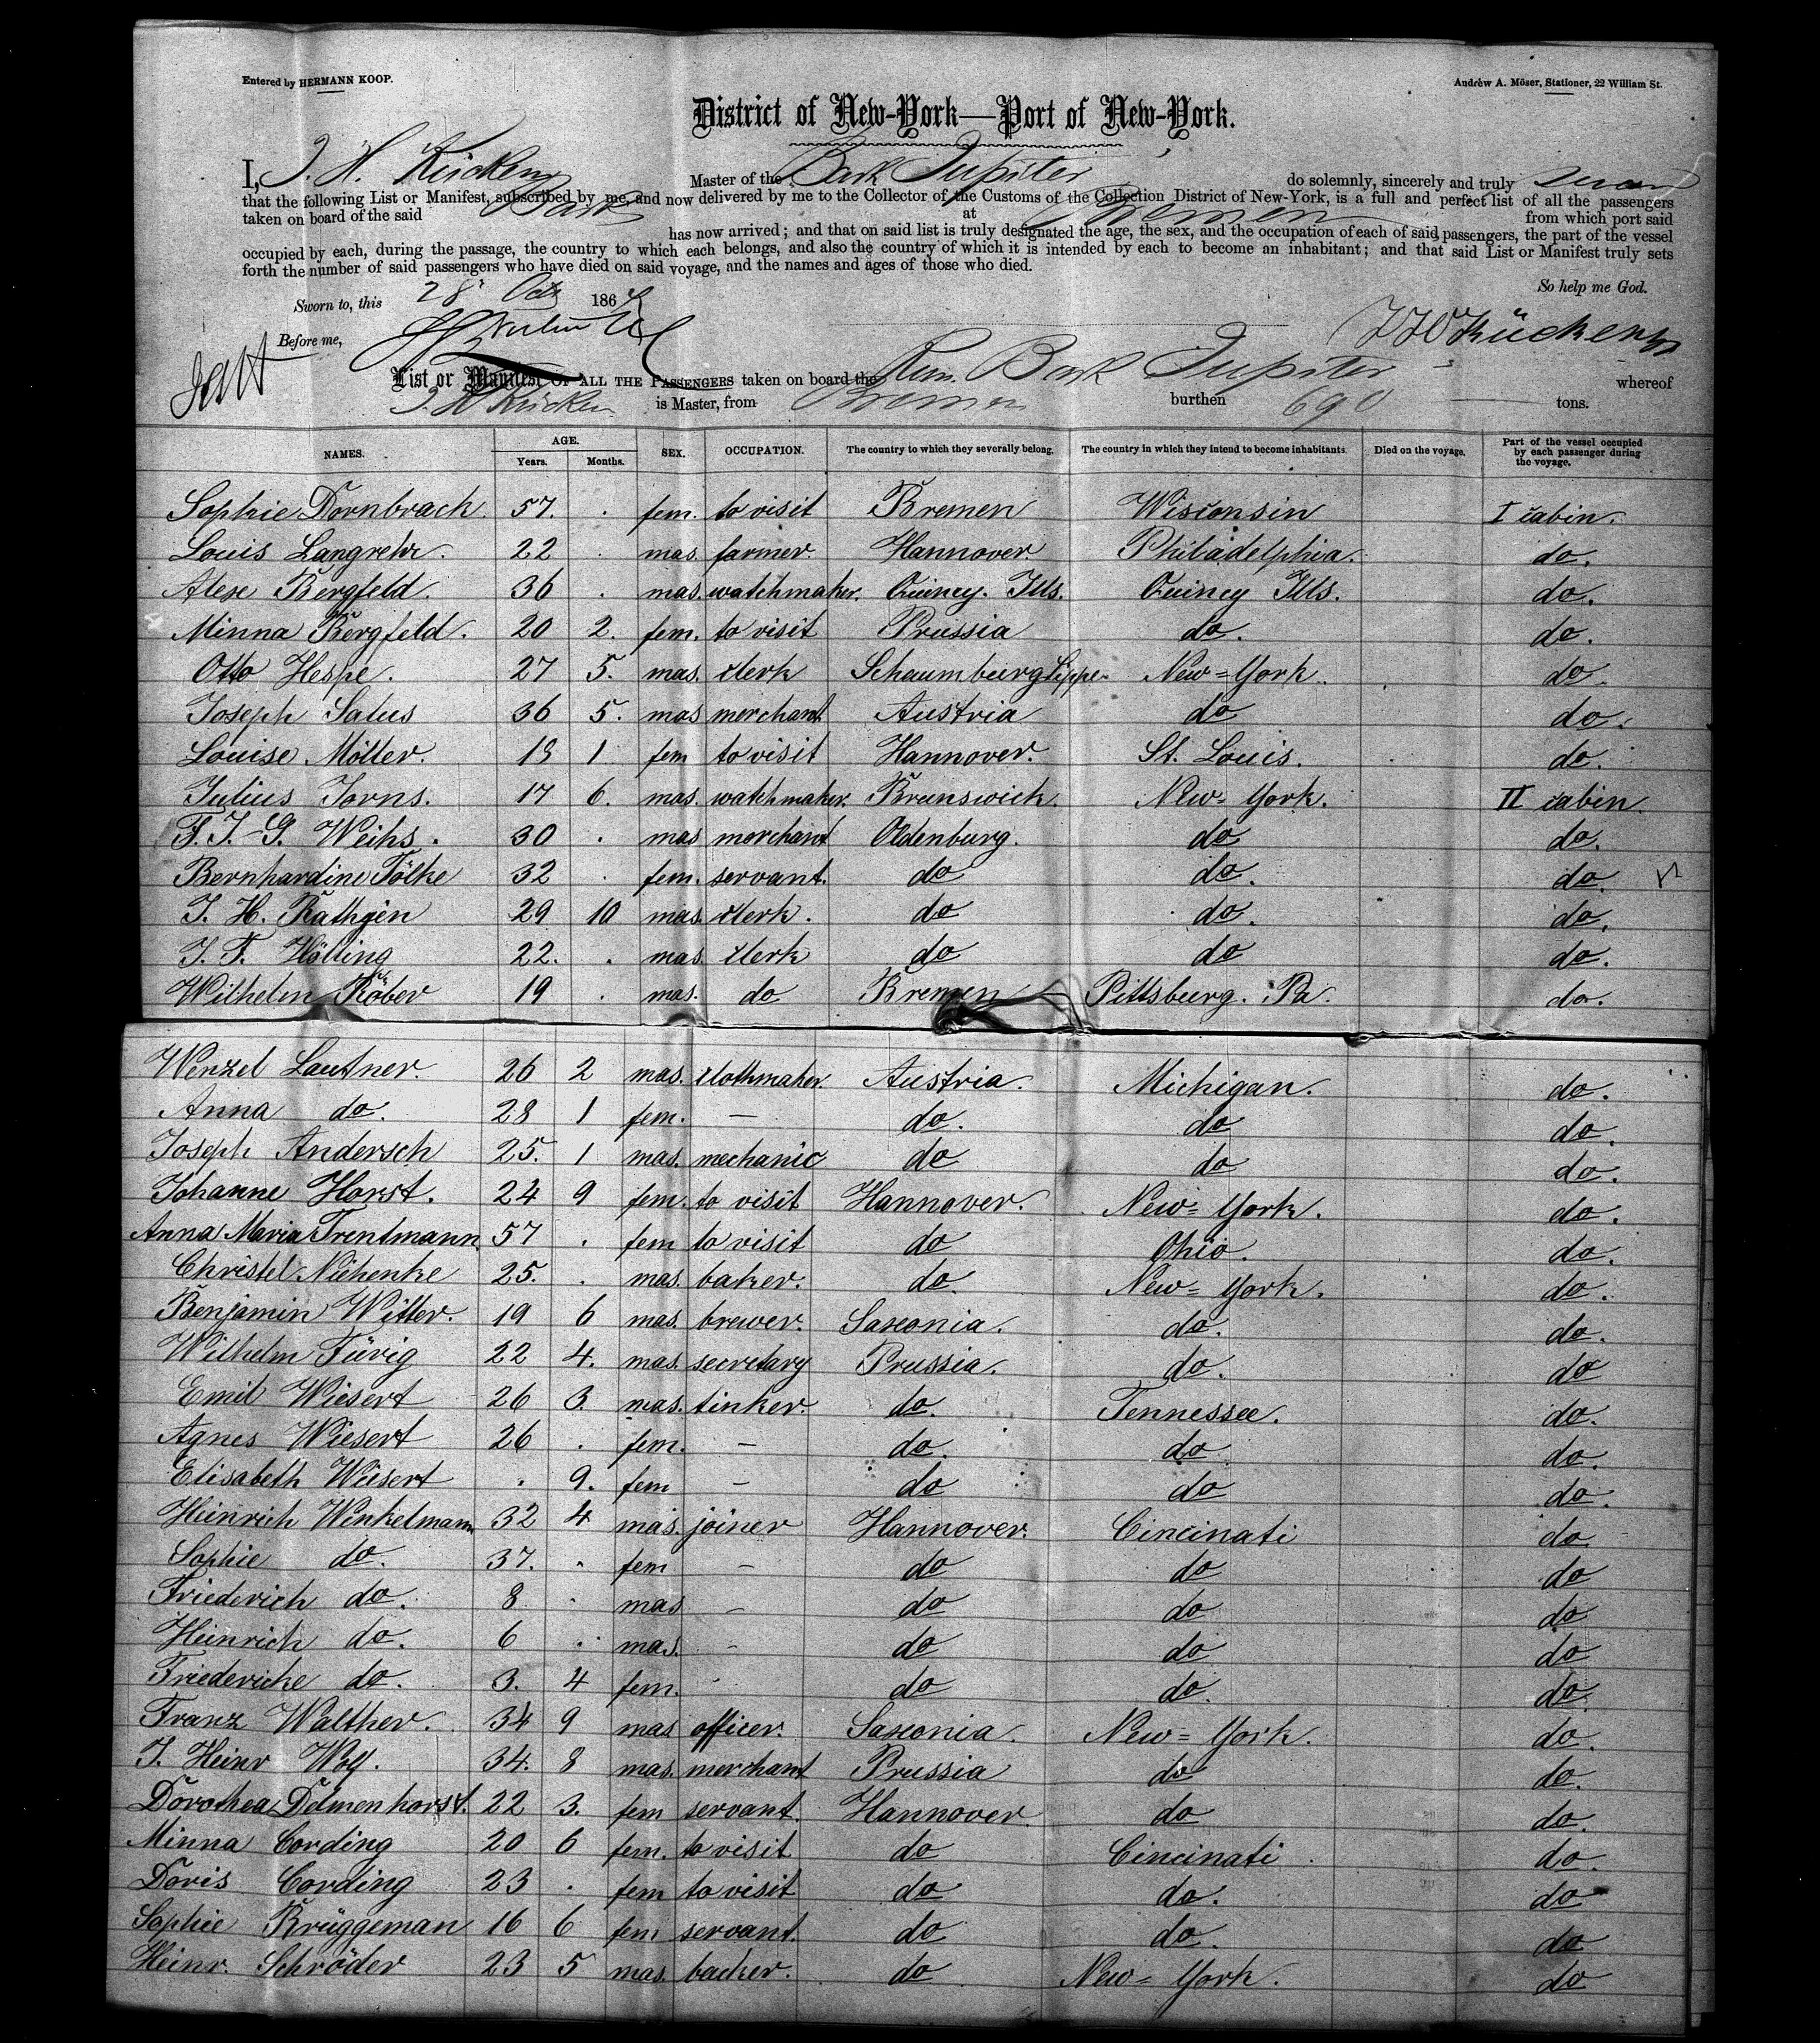 Entered by HERMANN KOOP.
Andrew A. Möser, Stationer, 22 William St.
District of New-York—Port of New-York.
I, J. H. Kücken Master of the Bark Jupiter do solemnly, sincerely and truly swear
that the following List or Manifest, subscribed by me, and now delivered by me to the Collector of the Customs of the Collection District of New-York, is a full and perfect list of all the passengers
taken on board of the said Bark at Bremen from which port said
has now arrived; and that on said list is truly designated the age, the sex, and the occupation of each of said passengers, the part of the vessel
occupied by each, during the passage, the country to which each belongs, and also the country of which it is intended by each to become an inhabitant; and that said List or Manifest truly sets
forth the number of said passengers who have died on said voyage, and the names and ages of those who died.
So help me God.
Sworn to, this 28 Oct 186
Before me,
List or Manifest OF ALL THE PASSENGERS taken on board the Bark Jupiter whereof
J. H Kücken is Master, from Bremen burthen 690 tons.
NAMES. AGE. Years. Months. SEX. OCCUPATION. The country to which they severally belong. The country in which they intend to become inhabitants. Died on the voyage. Part of the vessel occupied by each passenger during the voyage.
Sophie Dornbrach 57. . fem. to visit Bremen Wisconsin I cabin.
Louis Langrehr. 22 . mas. farmer. Hannover. Philadelphia. do.
Alexe Bergfeld. 36 . mas. watchmaker. Quincy. Ills. Quincy Ills. do.
Minna Bergfeld. 20 2. fem. to visit Prussia do. do.
Otto Hespe. 27 5. mas. clerk Schaumburg Lippe. New=York. do.
Joseph Salus 36 5. mas merchant Austria do do.
Louise Möller. 18 1 fem to visit Hannover. St. Louis. do.
Julius Jorns. 17 6. mas. watchmaker. Brunswick. New=York. II cabin
F. J. G. Weihs. 30 . mas merchant Oldenburg. do do.
Bernhardine Tölke 32 . fem. servant. do do. do.
J. H. Rathgen 29 10 mas. clerk. do do. do.
J. F. Hölling 22. . mas. clerk do do do.
Wilhelm Röber 19 . mas. do Bremen Pittsburg. Pa. do.
Wenzel Lautner. 26 2 mas. clothmaker. Austria. Michigan. do.
Anna do. 28 1 fem. — do. do do.
Joseph Andersch 25. 1 mas. mechanic do do do.
Johanne Horst. 24 9 fem. to visit Hannover. New=York. do.
Anna Maria Trentmann 57 . fem to visit do Ohio. do.
Christel Niehenke 25. . mas. baker. do. New=York. do.
Benjamin Witter. 19 6 mas. brewer. Saxonia. do. do.
Wilhelm Fürig 22 4. mas. secretary Prussia. do. do
Emil Wiesert 26 3. mas. tinker. do. Tennessee. do.
Agnes Wiesert 26 . fem. — do. do do.
Elisabeth Wiesert . 9. fem — do do do.
Heinrich Winkelmann 32 4 mas. joiner Hannover. Cincinati do.
Sophie do. 37. . fem — do do do
Friederich do. 8 . mas — do do do
Heinrich do. 6 . mas. - do do do
Friedericke do. 3. 4 fem. - do do. do.
Franz Walther. 34 9 mas officer. Saxonia. New=York. do.
J. Heinr Wolf. 34. 8 mas. merchant Prussia do do.
Dorothea Delmenhorst. 22 3. fem servant. Hannover do do.
Minna Cording 20 6 fem. to visit do Cincinati do.
Doris Cording 23 . fem to visit do do. do
Sophie Brüggeman 16 6 fem servant. do do. do
Heinr. Schröder 23 5 mas. backer. do New=York. do